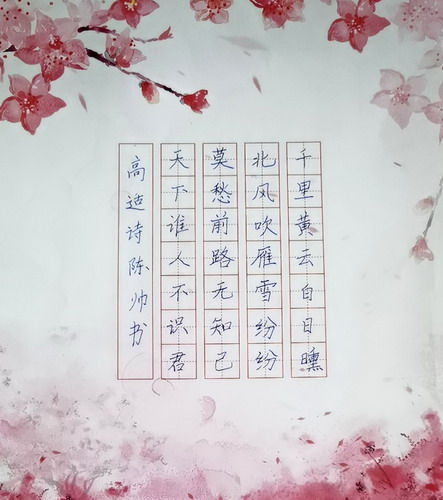 千里黄云白日曛
北风吹雁雪纷纷
莫愁前路无知己
天下谁人不识君
高适诗陈帅书